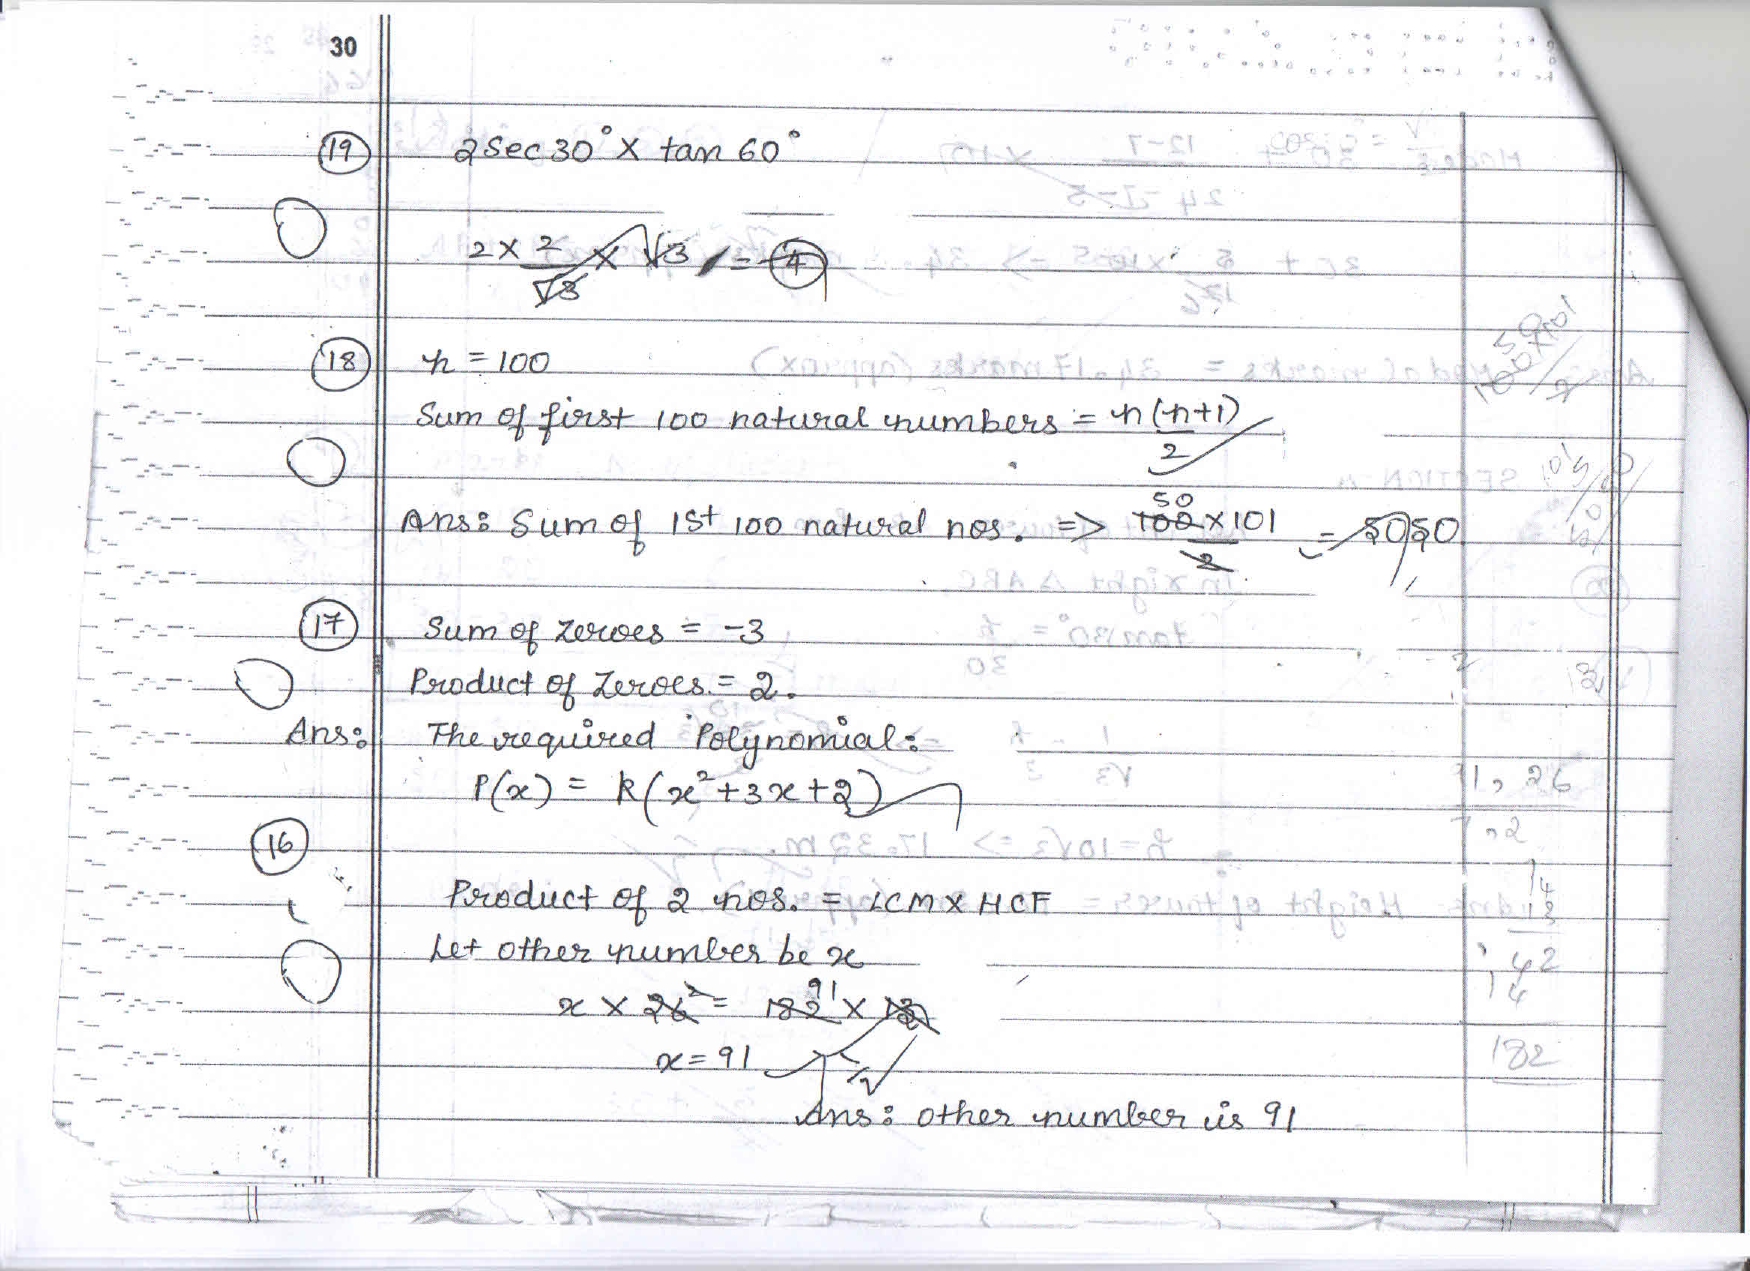 30
(19) 2 Sec 30° × tan 60°
2 × 2/√3 × √3 = 4
(18) n = 100
Sum of first 100 natural numbers = n(n+1)/2
Ans: Sum of 1st 100 natural nos. => 50 100 × 101 / 2 = 5050
(17) Sum of zeroes = -3
Product of Zeroes = 2.
Ans: The required Polynomial:
P(x) = k(x² + 3x + 2)
(16)
Product of 2 nos. = LCM × HCF
Let other number be x
x × 26 2 = 182 91 × 13
x = 91
Ans: other number is 91
50
100×101
2
182